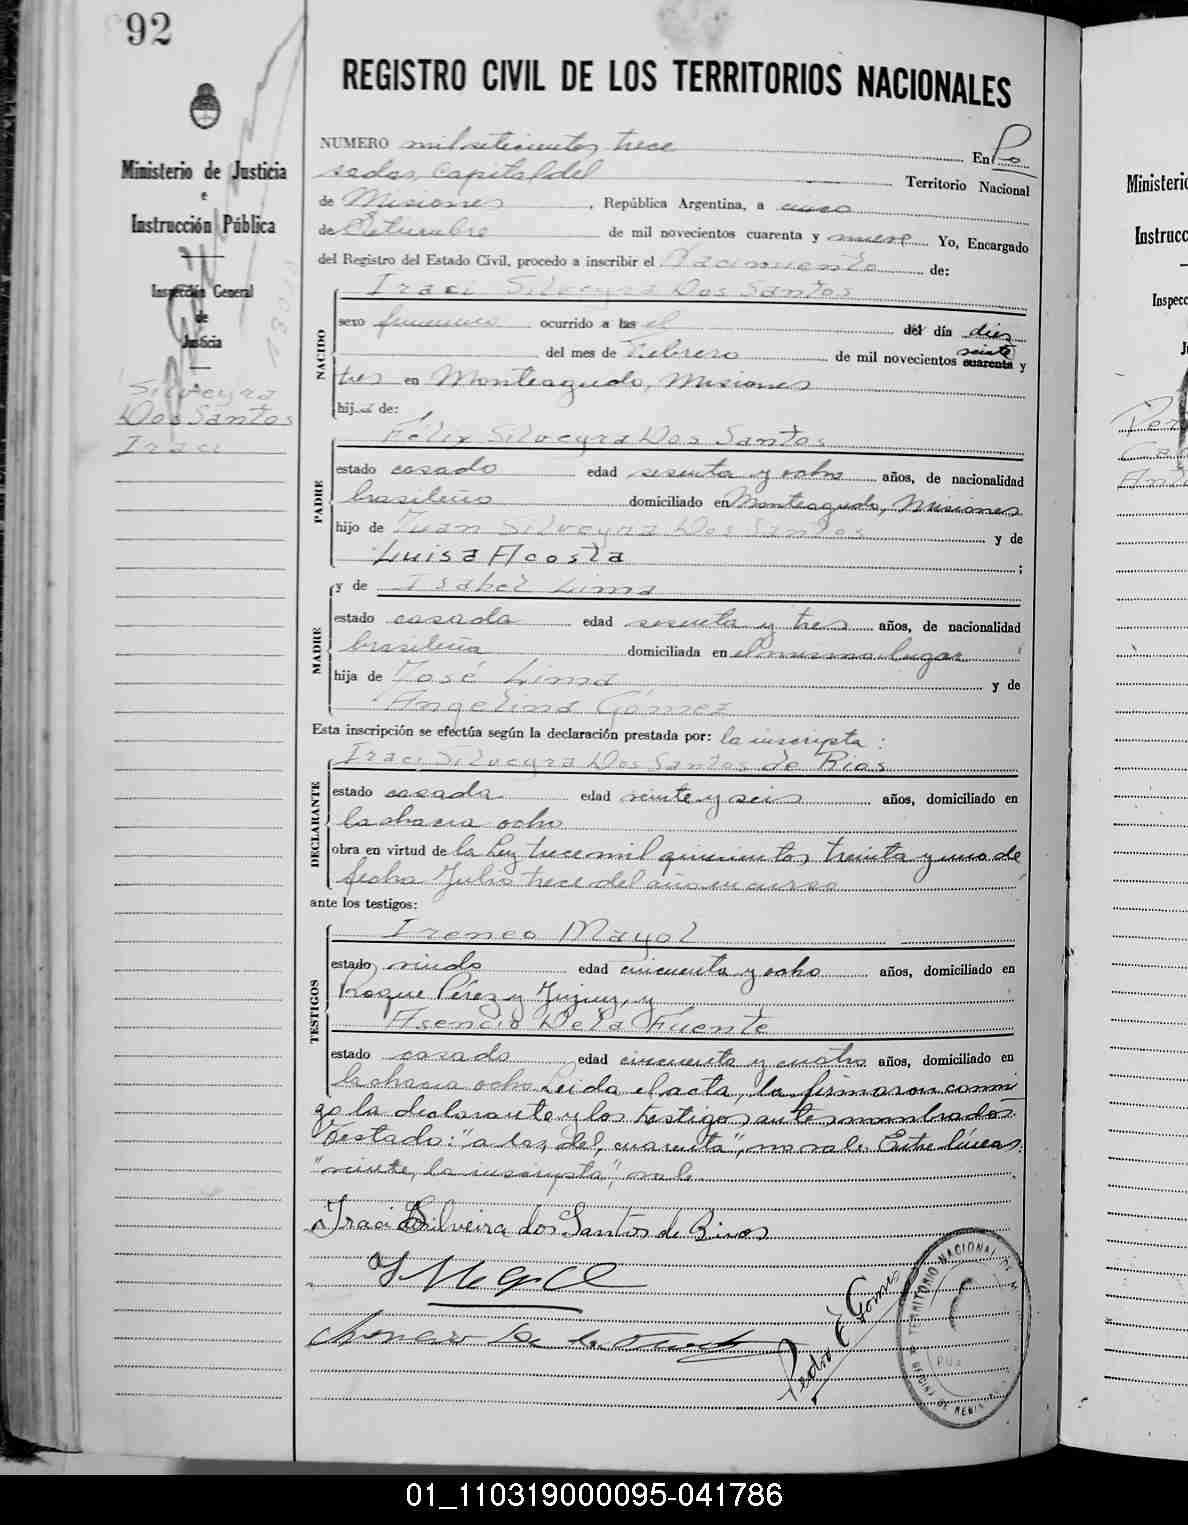 92
REGISTRO CIVIL DE LOS TERRITORIOS NACIONALES
Ministerio de Justicia
e
Instrucción Pública
Inspección General
de
Justicia
Silveyra
Dos Santos
Iraci
NUMERO mil setecientos trece En Po
sadas, Capital del Territorio Nacional
de Misiones, República Argentina, a cinco
de Setiembre de mil novecientos cuarenta y nueve Yo, Encargado
del Registro del Estado Civil, procedo a inscribir el Nacimiento de:
NACIDO
Iraci Silveyra Dos Santos
sexo femenino ocurrido a las el del día diez
del mes de Febrero de mil novecientos cuarenta veinte y
tres en Monteagudo, Misiones
hija de:
PADRE
Félix Silveyra Dos Santos
estado casado edad sesenta y ocho años, de nacionalidad
brasileno domiciliado en Monteagudo, Misiones
hijo de Juan Silveyra Dos Santos y de
Luisa Acosta ;
MADRE
y de Isabel Lima
estado casada edad sesenta y tres años, de nacionalidad
brasileña domiciliada en el mismo lugar
hija de José Lima y de
Angelina Gómez
Esta inscripción se efectúa según la declaración prestada por: la inscripta:
DECLARANTE
Iraci Silveyra Dos Santos de Rios
estado casada edad veinte y seis años, domiciliado en
la chacra ocho
obra en virtud de la Ley trece mil quinientos treinta y uno de
fecha Julio trece del año en curso
ante los testigos:
TESTIGOS
Ireneo Mayol
estado viudo edad cincuenta y ocho años, domiciliado en
Roque Pérez y Jujuy, y
Asencio De la Fuente
estado casado edad cincuenta y cuatro años, domiciliado en
la chacra ocho. Leida el acta, la firmaron conmi
go la declarante y los testigos antes nombrados.
Testado: "a las, del, cuarenta", no vale. Entre líneas:
"veinte, la inscripta", vale.
Iraci Silveira dos Santos de Rios
Asencio De la Fuente
Pedro E Gomes
TERRITORIO NACIONAL DE
01_110319000095-041786
Ministerio
Instrucc
Inspecc
Ju